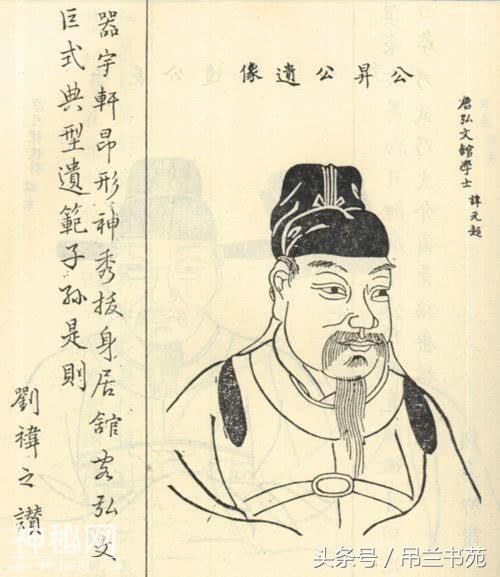 唐弘文館學士 諱元超
公昇公遺像
器宇軒昂形神秀拔身居舘客弘文
巨式典型遺範子孫是則
劉禕之讃
神秘网
头条号 / 吊兰书苑